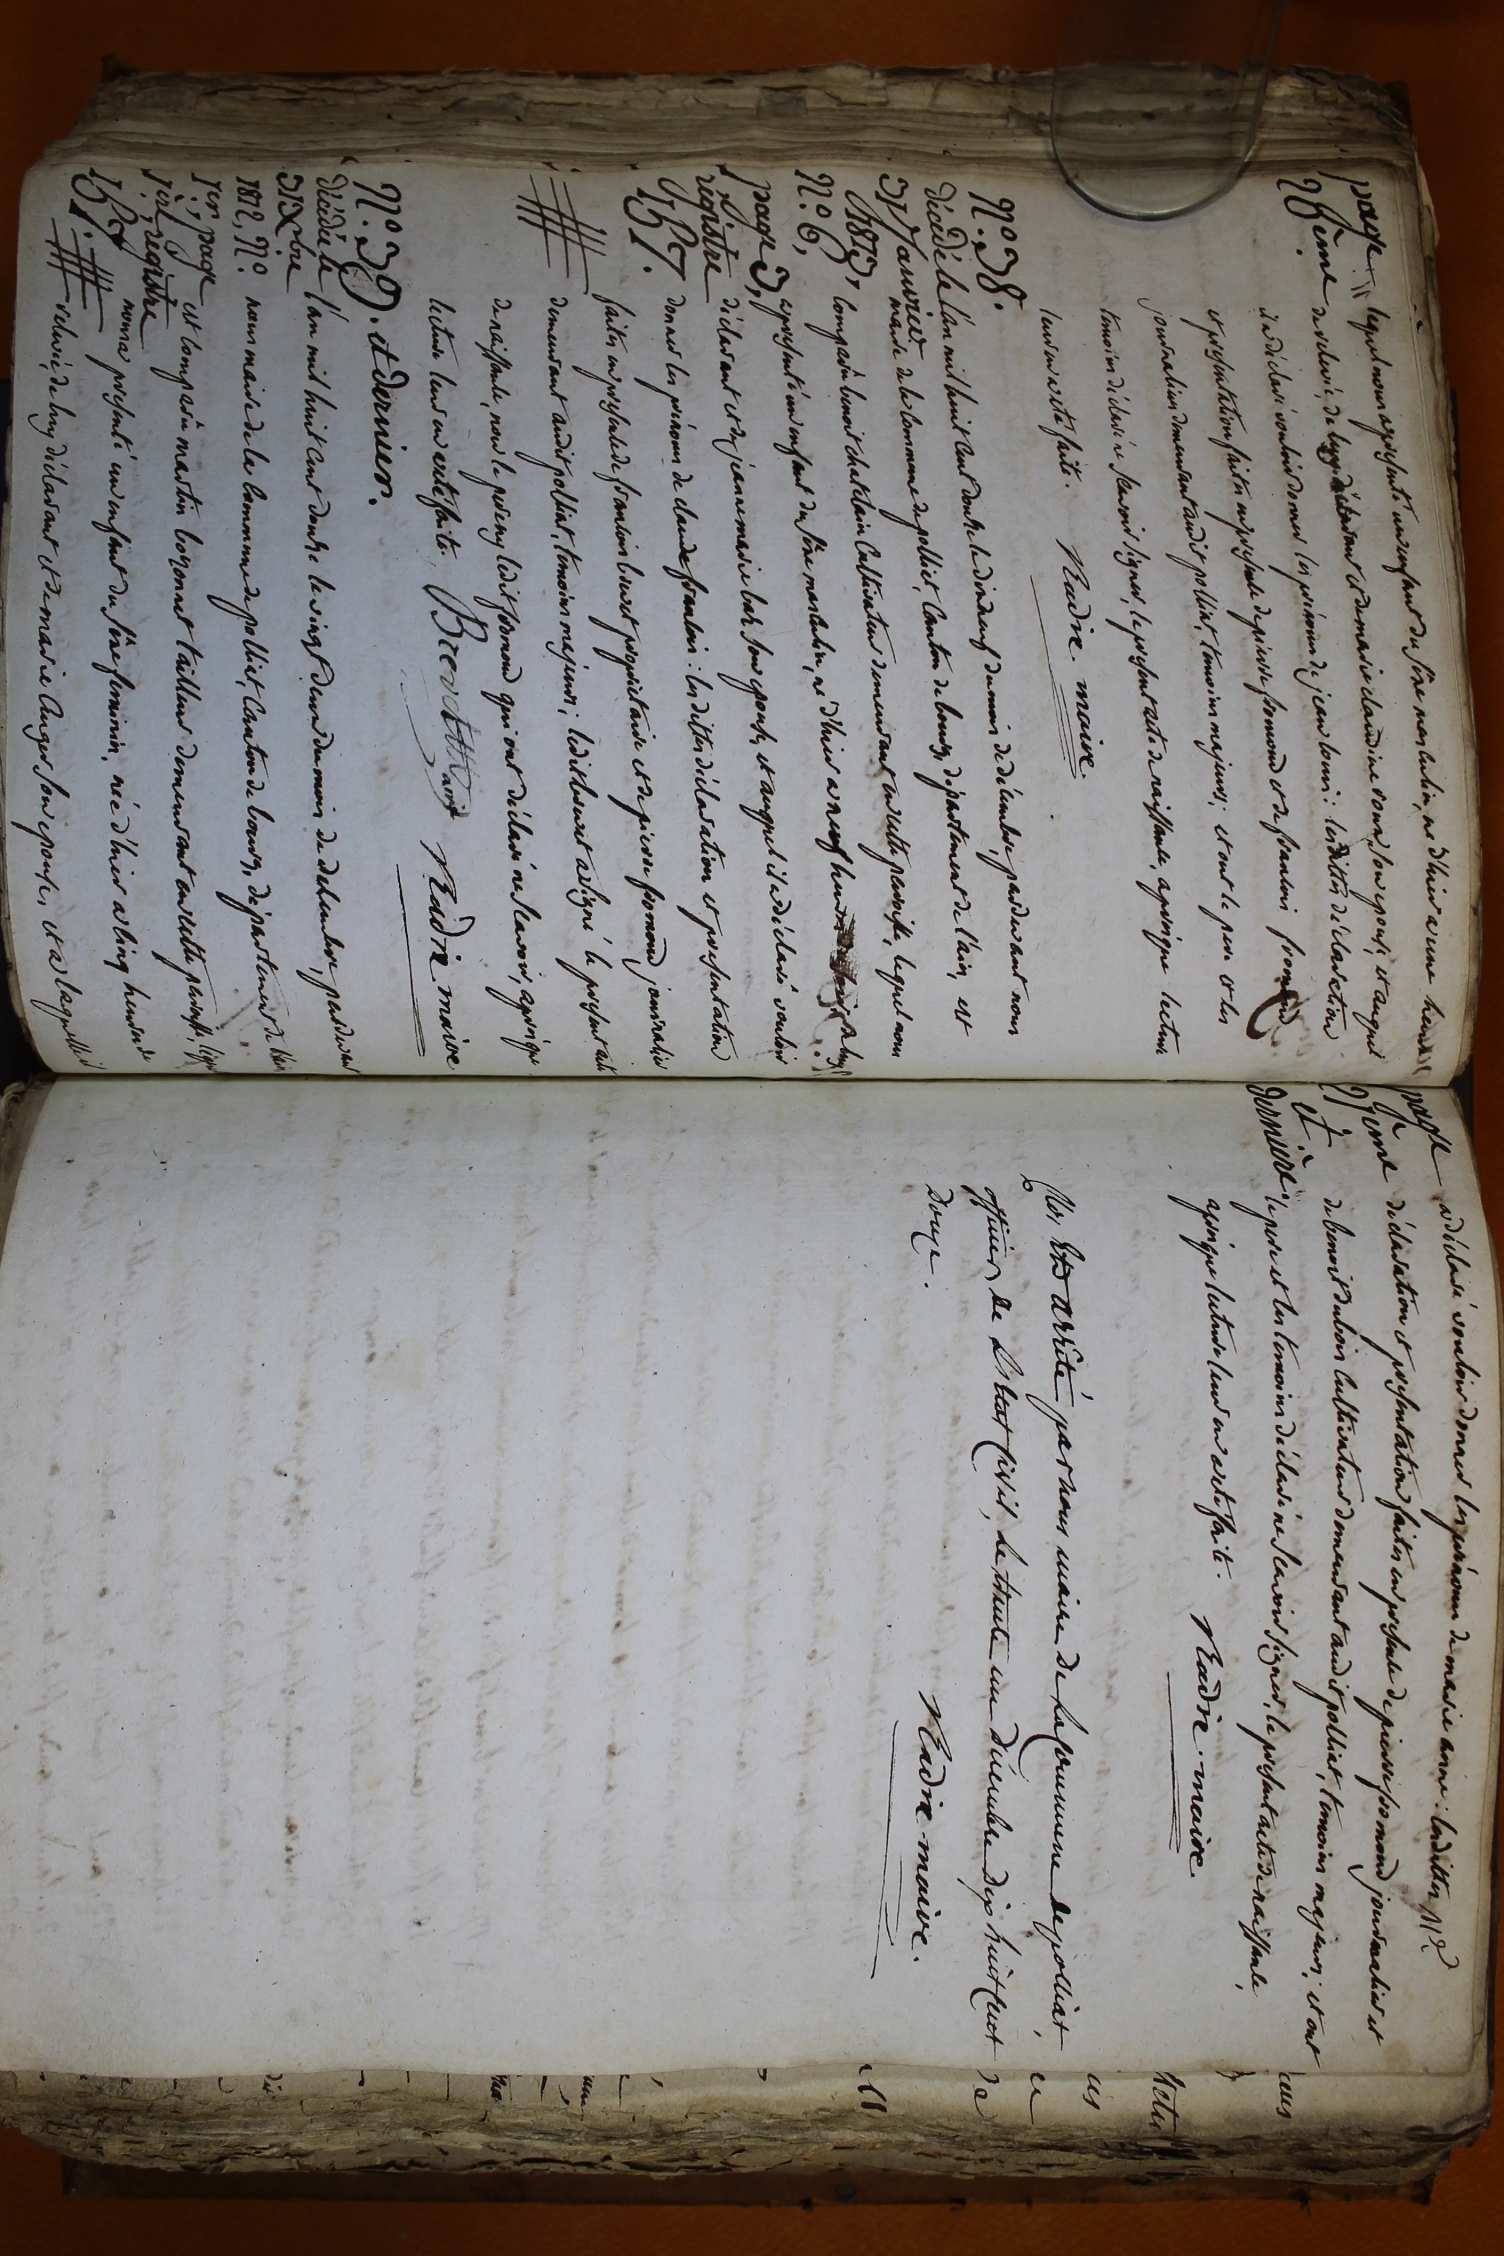 page 26eme.
lequel nous a présenté un enfant du sêxe masculin, né d'hier a une heure
de relevé, de luy déclarant et de marie claudine son épouse, et auquel
il a déclaré vouloir donner les prénoms de jean louis: lesdittes déclaration
et présentation faites en présence de pierre fromond et de françois fromond
journaliers demeurant audit polliat, temoins majeurs; et ont le pere et les
temoins déclaré ne scavoir signer, le présent acte de naissance, apres que lecture
leur en a été faite. Nadre. maire.
N.° 38.
décédé le
31 Janvier
1813,
N.° 6,
page 3,
régistre
L'an mil huit cent douze le dixneuf du mois de décembre, pardevant nous
maire de la commune de polliat, canton de bourg, département de l'ain, est
comparu benoit chatelain cultivateur demeurant en cette paroisse, lequel nous
a présenté un enfant du sêxe masculin, né d'hier a neuf heures de luy
déclarant et de jeanne marie son épouse, et auquel il a déclaré vouloir
donner les prénoms de claude françois: lesdittes déclaration et présentation
faites en présence de françois brevet propriétaire et de pierre fromond journalier
demeurant audit polliat, temoins majeurs; ledit brevet a signé le présent acte
de naissance, non le pere ny ledit fromond qui ont déclaré ne scavoir, apres que
lecture leur en a été faite. Nadre. maire
N.° 39. et dernier.
décédée le
31 Xbre
1812, N.°
page
régistre
L'an mil huit cent douze le vingt deux du mois de décembre, pardevant
nous maire de la commune de polliat, canton de bourg, département de l'ain
est comparu martin tailleur demeurant en cette paroisse, lequel
nous a présenté un enfant du sêxe féminin, née d'hier a cinq heures de
relevé, de luy déclarant et de marie son épouse, et a laquelle il
page 27eme et derniere.
a déclaré vouloir donner les prénoms de marie anne: lesdittes
déclaration et présentation faites en présence de pierre fromond journalier et
de benoit dubois cultivateur demeurant audit polliat, temoins majeurs; et ont
le pere et les temoins déclaré ne scavoir signer, le présent acte de naissance,
apres que lecture leur en a été faite. Nadre. maire.
Clos et arrêté par nous maire de la Commune de polliat,
officier de L'Etat Civil, le trente un décembre dix huit Cent
Douze.
Nadre. maire.